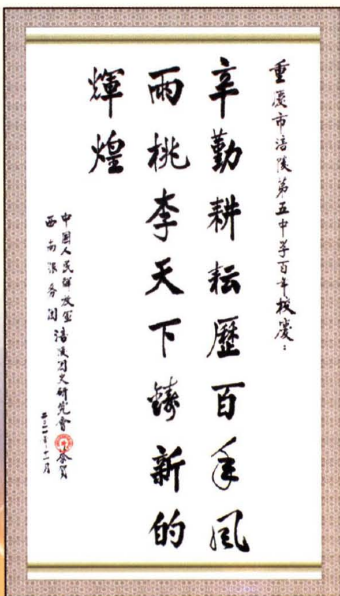 重慶市涪陵第五中学百年校慶：
辛勤耕耘歷百年風
雨桃李天下鑄新的
輝煌
中國人民解放軍
西南服務團
涪陵團史研究會
恭賀